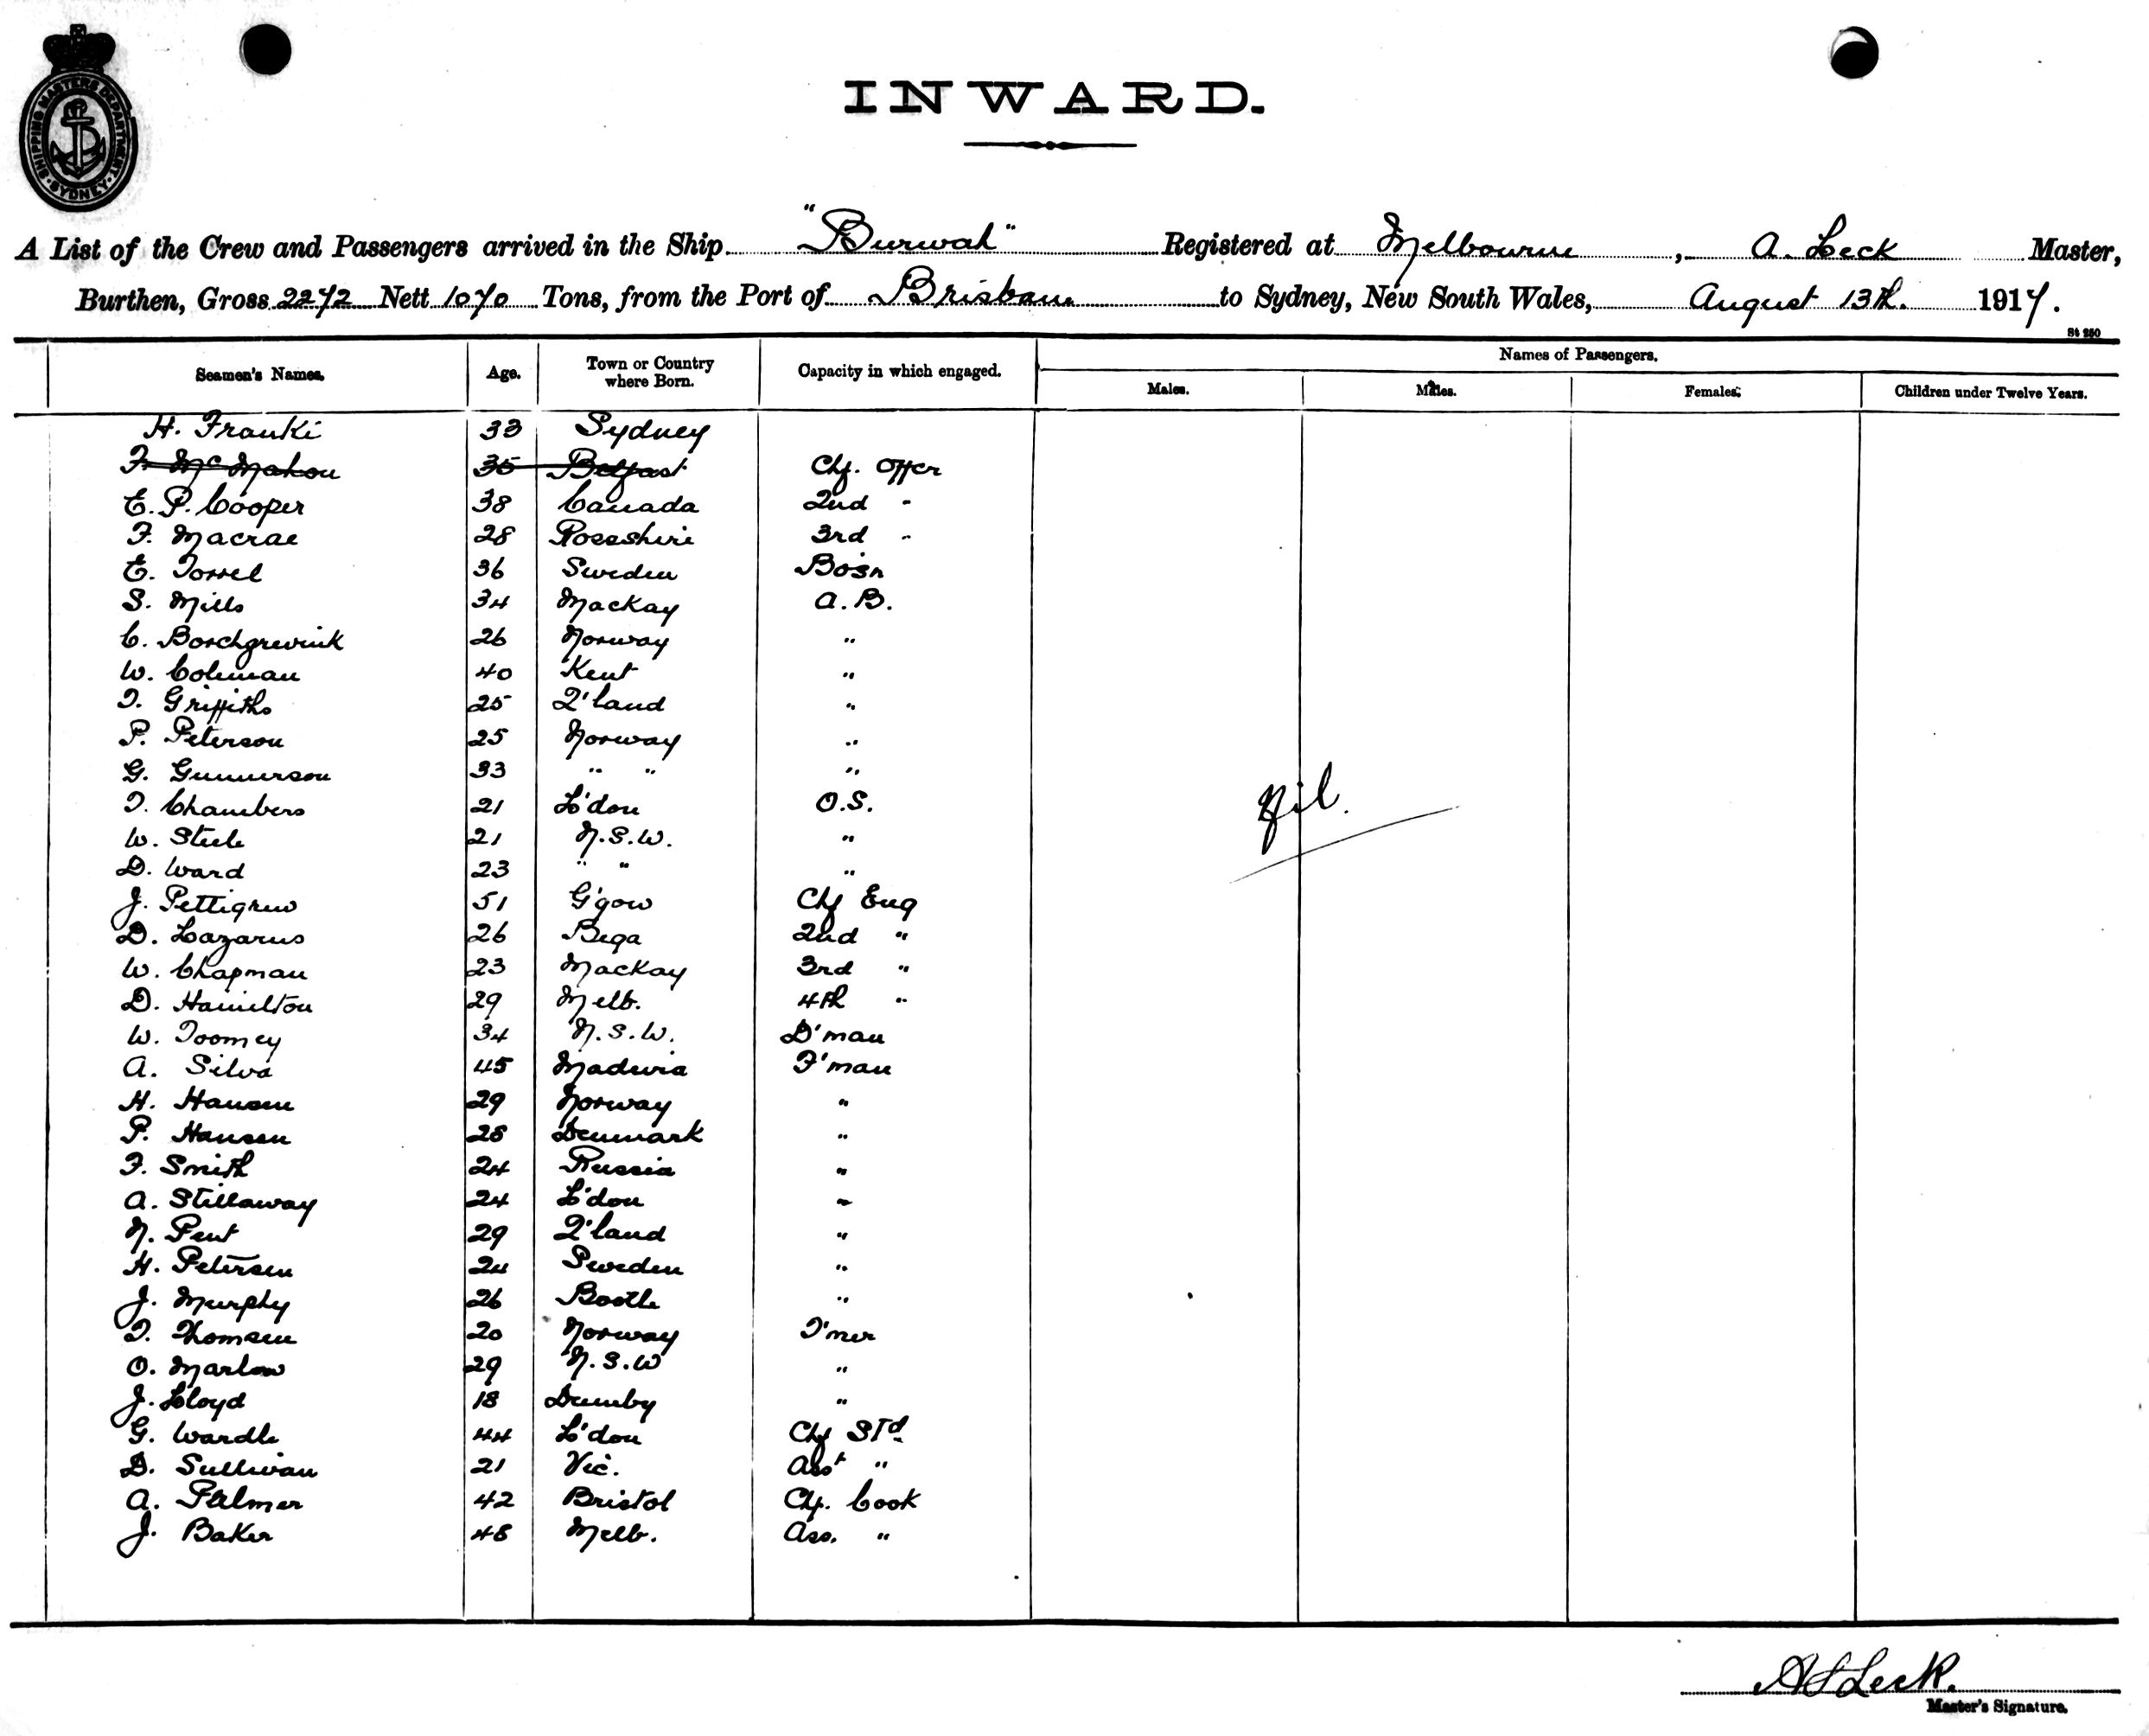 SHIPPING MASTERS DEPARTMENT · SYDNEY ·
INWARD.
A List of the Crew and Passengers arrived in the Ship "Burwah" Registered at Melbourne, A. Leck Master,
Burthen, Gross 2272 Nett 1070 Tons, from the Port of Brisbane to Sydney, New South Wales, August 13th. 1917.
St 250
Seamen's Names. Age. Town or Country where Born. Capacity in which engaged. Names of Passengers.
Males. Males. Females. Children under Twelve Years.
H. Franki 33 Sydney
F. McMahon 35 Belfast Chf. Offcr
E. P. Cooper 38 Canada 2nd "
F. Macrae 28 Rossshire 3rd "
E. Torrel 36 Sweden Bosn
S. Mills 34 Mackay A.B.
C. Borchgrevink 26 Norway "
W. Coleman 40 Kent "
T. Griffiths 25 Q'land "
P. Peterson 25 Norway "
G. Gunnerson 33 " " "
T. Chambers 21 L'don O.S.
W. Steele 21 N.S.W. "
D. Ward 23 " " "
J. Pettigrew 51 G'gow Chf Eng
D. Lazarus 26 Bega 2nd "
W. Chapman 23 Mackay 3rd "
D. Hamilton 29 Melb. 4th "
W. Toomey 34 N.S.W. D'man
A. Silva 45 Madeira F'man
H. Hansen 29 Norway "
P. Hansen 28 Denmark "
F. Smith 24 Russia "
A. Stillaway 24 L'don "
N. Pent 29 Q'land "
H. Petersen 24 Sweden "
J. Murphy 26 Bootle "
T. Thomsen 20 Norway T'mer
O. Marlow 29 N.S.W "
J. Lloyd 18 "
G. Wardle 44 L'don Chf Std.
D. Sullivan 21 Vic. Asst "
A. Palmer 42 Bristol Chf. Cook
J. Baker 48 Melb. Ass. "
Nil.
A S Leck.
Master's Signature.